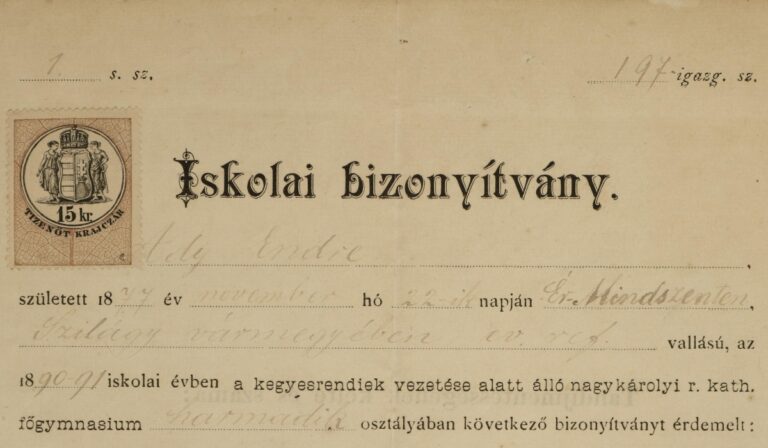 1. s. sz.
197-igazg. sz.
15 kr.
TIZENÖT KRAJCZÁR
Iskolai bizonyítvány.
Ady Endre,
született 1877 év november hó 22-ik napján Ér-Mindszenten,
Szilágy vármegyében ev. ref. vallású, az
1890-91 iskolai évben a kegyesrendiek vezetése alatt álló nagykárolyi r. kath.
főgymnasium harmadik osztályában következő bizonyítványt érdemelt: